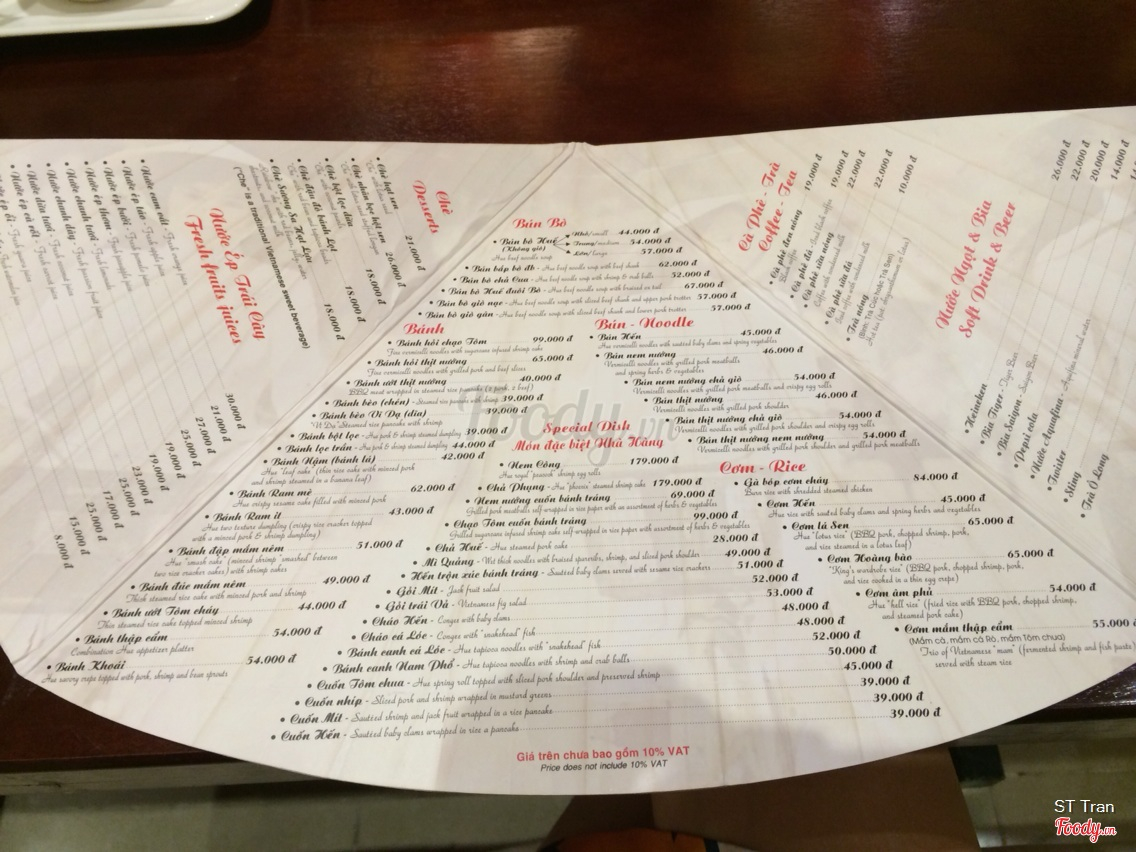 Bún Bò
• Bún bò Huế Nhỏ/small 44.000 đ
(Không giò) Trung/medium 54.000 đ
Lớn/large 57.000 đ
Hue beef noodle soup
• Bún bắp bò đb - Hue beef noodle soup with beef shank 62.000 đ
• Bún bò chả Cua - Hue beef noodle soup with shrimp & crab balls 52.000 đ
• Bún bò Huế đuôi Bò - Hue beef noodle soup with braised ox tail 67.000 đ
• Bún bò giò nạc - Hue beef noodle soup with sliced beef shank and upper pork trotter 57.000 đ
• Bún bò giò gân - Hue beef noodle soup with sliced beef shank and lower pork trotter 57.000 đ
Bánh
• Bánh hỏi chạo Tôm 99.000 đ
Fine vermicelli noodles with sugarcane infused shrimp cake
• Bánh hỏi thịt nướng 65.000 đ
Fine vermicelli noodles with grilled pork and beef slices
• Bánh ướt thịt nướng 40.000 đ
BBQ meat wrapped in steamed rice pancake (2 pork, 2 beef)
• Bánh bèo (chén) - Steamed rice pancake with shrimp 39.000 đ
• Bánh bèo Vĩ Dạ (dĩa) 39.000 đ
Vi Da Steamed rice pancake with shrimp
• Bánh bột lọc - Hue pork & shrimp steamed dumpling 39.000 đ
• Bánh lọc trần - Hue pork & shrimp steamed dumpling 44.000 đ
• Bánh Nậm (bánh lá) 42.000 đ
Hue "leaf" cake (thin rice cake with minced pork
and shrimp steamed in a banana leaf)
• Bánh Ram mè 62.000 đ
Hue crispy sesame cake filled with minced pork
• Bánh Ram ít 43.000 đ
Hue two texture dumpling (crispy rice cracker topped
with a minced pork & shrimp dumpling)
• Bánh đập mắm nêm 51.000 đ
Hue "smash cake" (minced shrimp "smashed" between
two rice cracker cakes) with shrimp cakes
• Bánh đúc mắm nêm 49.000 đ
Thick steamed rice cake with minced pork and shrimp
• Bánh ướt Tôm cháy 44.000 đ
Thin steamed rice cake topped minced shrimp
• Bánh thập cẩm 54.000 đ
Combination Hue appetizer platter
• Bánh Khoái 54.000 đ
Hue savory crepe topped with pork, shrimp and bean sprouts
Bún - Noodle
• Bún Hến 45.000 đ
Hue vermicelli noodles with sauteed baby clams and spring vegetables
• Bún nem nướng 46.000 đ
Vermicelli noodles with grilled pork meatballs
and spring herbs & vegetables
• Bún nem nướng chả giò 54.000 đ
Vermicelli noodles with grilled pork meatballs and crispy egg rolls
• Bún thịt nướng 46.000 đ
Vermicelli noodles with grilled pork shoulder
• Bún thịt nướng chả giò 54.000 đ
Vermicelli noodles with grilled pork shoulder and crispy egg rolls
• Bún thịt nướng nem nướng 54.000 đ
Vermicelli noodles with grilled pork shoulder and grilled pork meatballs
Special Dish
Món đặc biệt Nhà Hàng
• Nem Công 179.000 đ
Hue royal "peacock" shrimp egg rolls
• Chả Phụng - Hue "phoenix" steamed shrimp cake 179.000 đ
• Nem nướng cuốn bánh tráng 69.000 đ
Grilled pork meatballs self-wrapped in rice paper with an assortment of herbs & vegetables
• Chạo Tôm cuốn bánh tráng 99.000 đ
Grilled sugarcane infused shrimp cake self-wrapped in rice paper with assortment of herbs & vegetables
• Chả Huế - Hue steamed pork cake 28.000 đ
• Mì Quảng - Wet thick noodles with braised spareribs, shrimp, and sliced pork shoulder 49.000 đ
• Hến trộn xúc bánh tráng - Sauteed baby clams served with sesame rice crackers 51.000 đ
• Gỏi Mít - Jack fruit salad 52.000 đ
• Gỏi trái Vả - Vietnamese fig salad 53.000 đ
• Cháo Hến - Congee with baby clams 48.000 đ
• Cháo cá Lóc - Congee with "snakehead" fish 48.000 đ
• Bánh canh cá Lóc - Hue tapioca noodles with "snakehead" fish 52.000 đ
• Bánh canh Nam Phổ - Hue tapioca noodles with shrimp and crab balls 50.000 đ
• Cuốn Tôm chua - Hue spring roll topped with sliced pork shoulder and preserved shrimp 45.000 đ
• Cuốn nhíp - Sliced pork and shrimp wrapped in mustard greens 39.000 đ
• Cuốn Mít - Sautéed shrimp and jack fruit wrapped in a rice pancake 39.000 đ
• Cuốn Hến - Sautéed baby clams wrapped in rice a pancake 39.000 đ
Cơm - Rice
• Gà bóp cơm cháy 84.000 đ
Burn rice with shredded steamed chicken
• Cơm Hến 45.000 đ
Hue rice with sauteed baby clams and spring herbs and vegetables
• Cơm lá Sen 65.000 đ
Hue "lotus rice" (BBQ pork, chopped shrimp, pork,
and rice steamed in a lotus leaf)
• Cơm Hoàng bào 65.000 đ
"King's wardrobe rice" (BBQ pork, chopped shrimp, pork,
and rice cooked in a thin egg crepe)
• Cơm âm phủ 54.000 đ
Hue "hell rice" (fried rice with BBQ pork, chopped shrimp,
and steamed pork cake)
• Cơm mắm thập cẩm 55.000 đ
(Mắm cà, mắm cá Rò, mắm Tôm chua)
Trio of Vietnamese "mam" (fermented shrimp and fish paste)
served with steam rice
Giá trên chưa bao gồm 10% VAT
Price does not include 10% VAT
Chè
Desserts
• Chè hạt sen 21.000 đ
• Chè nhãn bọc hột sen 26.000 đ
• Chè bột lọc dừa 18.000 đ
• Chè đậu đỏ bánh Lọt 18.000 đ
• Chè Sương Sa Hạt Lựu 18.000 đ
("Che" is a traditional Vietnamese sweet beverage)
Nước Ép Trái Cây
Fresh fruits juices
• Nước cam vắt - Fresh orange juice 30.000 đ
• Nước ép táo - Fresh apple juice 21.000 đ
• Nước ép bưởi 27.000 đ
• Nước ép thơm 25.000 đ
• Nước chanh tươi 19.000 đ
• Nước chanh dây 19.000 đ
• Nước dừa tươi 23.000 đ
• Nước ép cà rốt 23.000 đ
• Nước ép ổi 17.000 đ
25.000 đ
15.000 đ
8.000 đ
Cà Phê - Trà
Coffee - Tea
• Cà phê đen nóng 19.000 đ
Black coffee
• Cà phê đá - Iced black coffee 19.000 đ
• Cà phê sữa nóng 22.000 đ
Coffee with condensed milk
• Cà phê sữa đá 22.000 đ
Iced coffee with condensed milk
• Trà nóng 10.000 đ
(Bình, Trà Cúc hoặc Trà Sen)
Hot tea (pot, chrysanthemum or Lotus)
Nước Ngọt & Bia
Soft Drink & Beer
• Heineken 26.000 đ
• Bia Tiger - Tiger Beer 22.000 đ
• Bia Saigon - Saigon Beer 20.000 đ
• Pepsi cola 14.000 đ
• Nước Aquafina - Aquafina mineral water
• Twister
• Sting
• Trà Ô Long
Foody.vn
ST Tran
Foody.vn